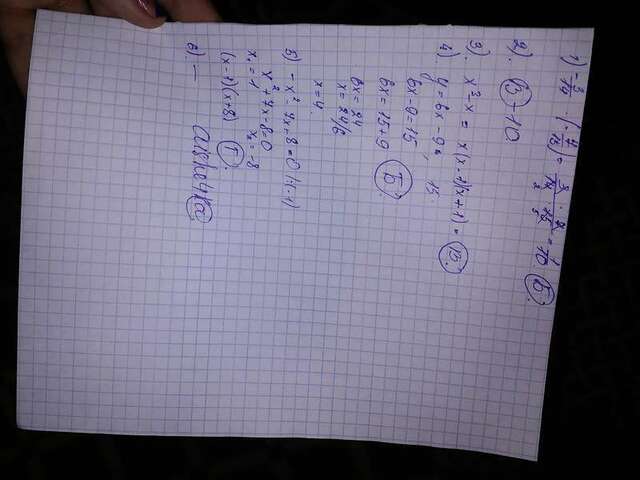 1) -3/14 · (-7/15) = 3/14 · 7/15 = 1/10 (Б.)
2). (В) -10
3). x²-x = x(x-1)(x+1) = (В.)
4) y = 6x - 9; 15
6x - 9 = 15
6x = 15 + 9 (Б.)
6x = 24
x = 24/6
x = 4.
5) -x² - 7x + 8 = 0 |·(-1)
x² + 7x - 8 = 0
x₁ = 1 x₂ = -8
(x-1)(x+8) (Г.)
6) —